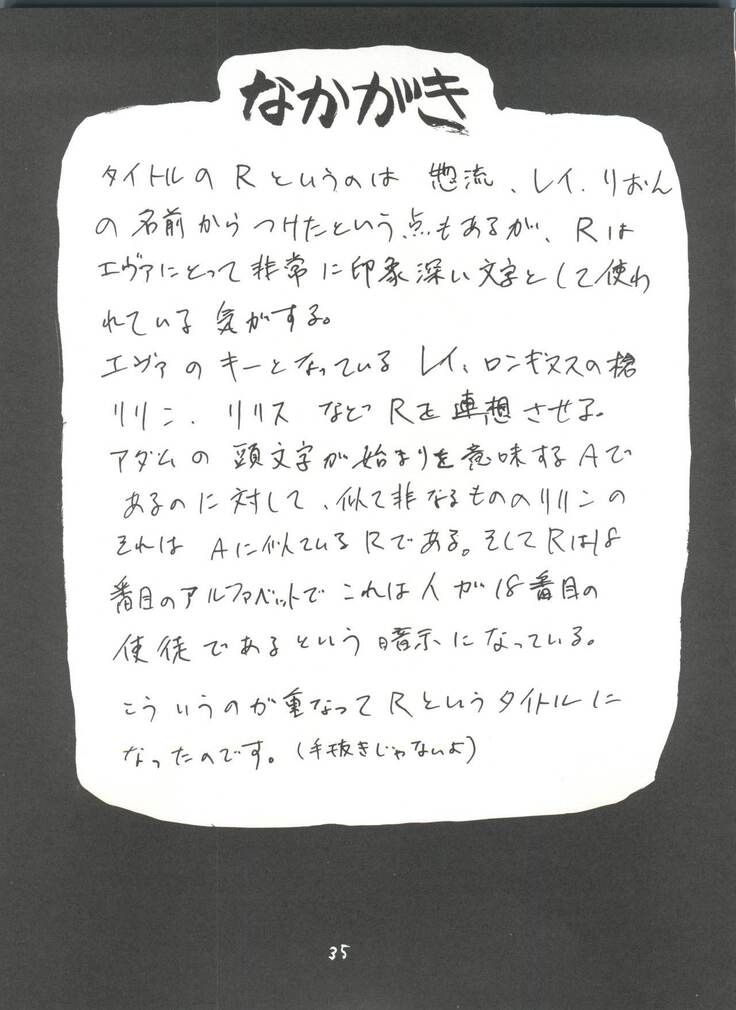 なかがき
タイトルの R というのは 惣流、レイ、りおん
の名前からつけたという点もあるが、Rは
エヴァにとって非常に印象深い文字として使わ
れている気がする。
エヴァのキーとなっている レイ、ロンギヌスの槍
リリン、リリス など Rを連想させる。
アダムの頭文字が始まりを意味するAで
あるのに対して、似て非なるもののリリンの
それは Aに似ているRである。そしてRは18
番目のアルファベットで これは人が18番目の
使徒であるという暗示になっている。
こういうのが重なって Rというタイトルに
なったのです。(手抜きじゃないよ)
35